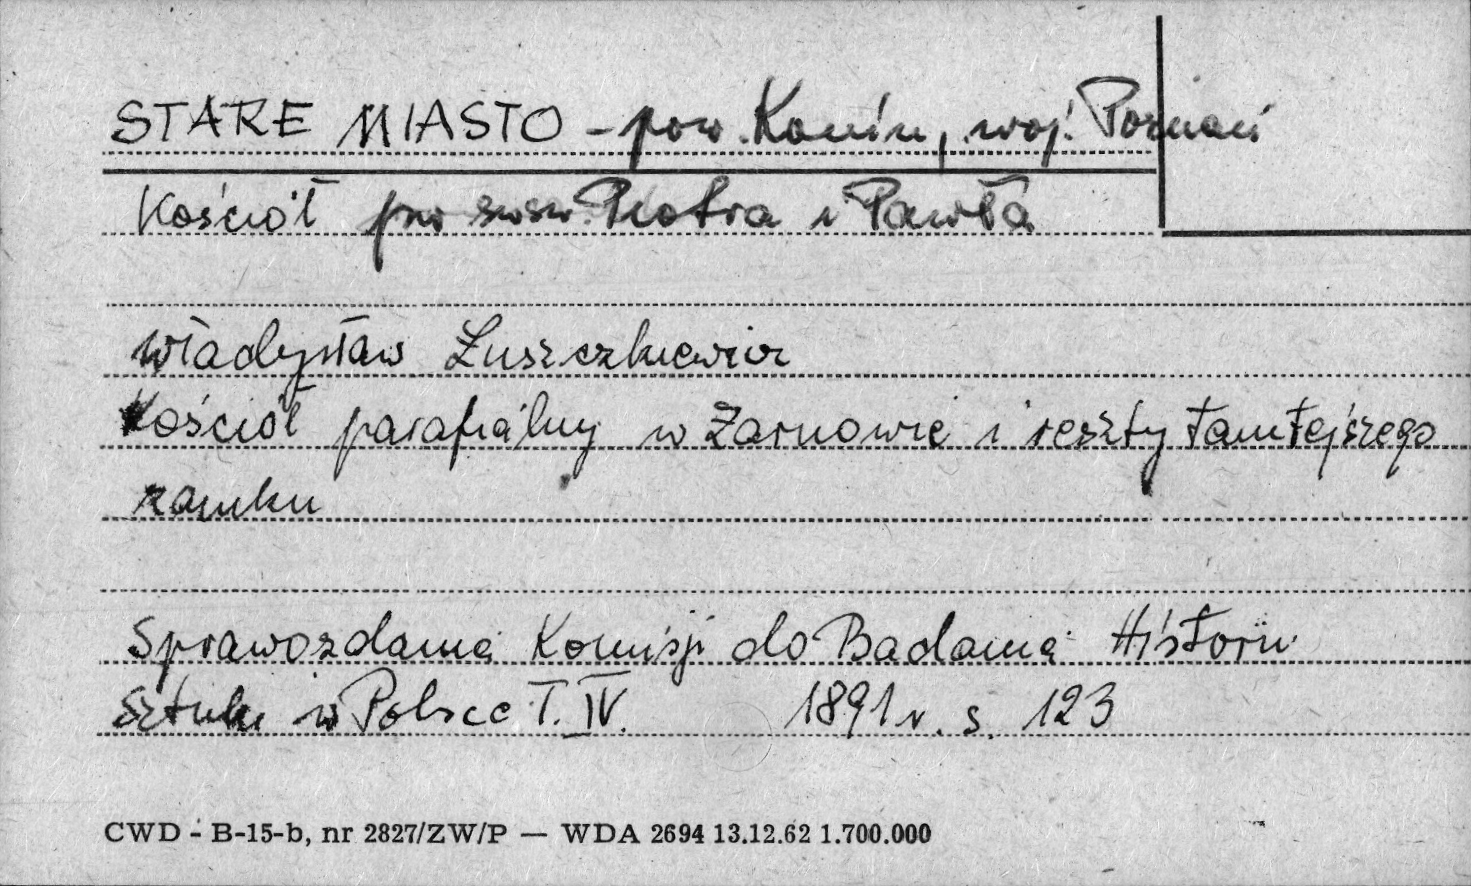 STARE MIASTO - pow. Konin, woj. Poznań
Kościół pw śwśw. Piotra i Pawła
Władysław Łuszczkiewicz
Kościół parafialny w Żarnowie i reszty tamtejszego
zamku
Sprawozdania Komisji do Badania Historii
Sztuki w Polsce T. IV. 1891 r. s. 123
CWD - B-15-b, nr 2827/ZW/P — WDA 2694 13.12.62 1.700.000